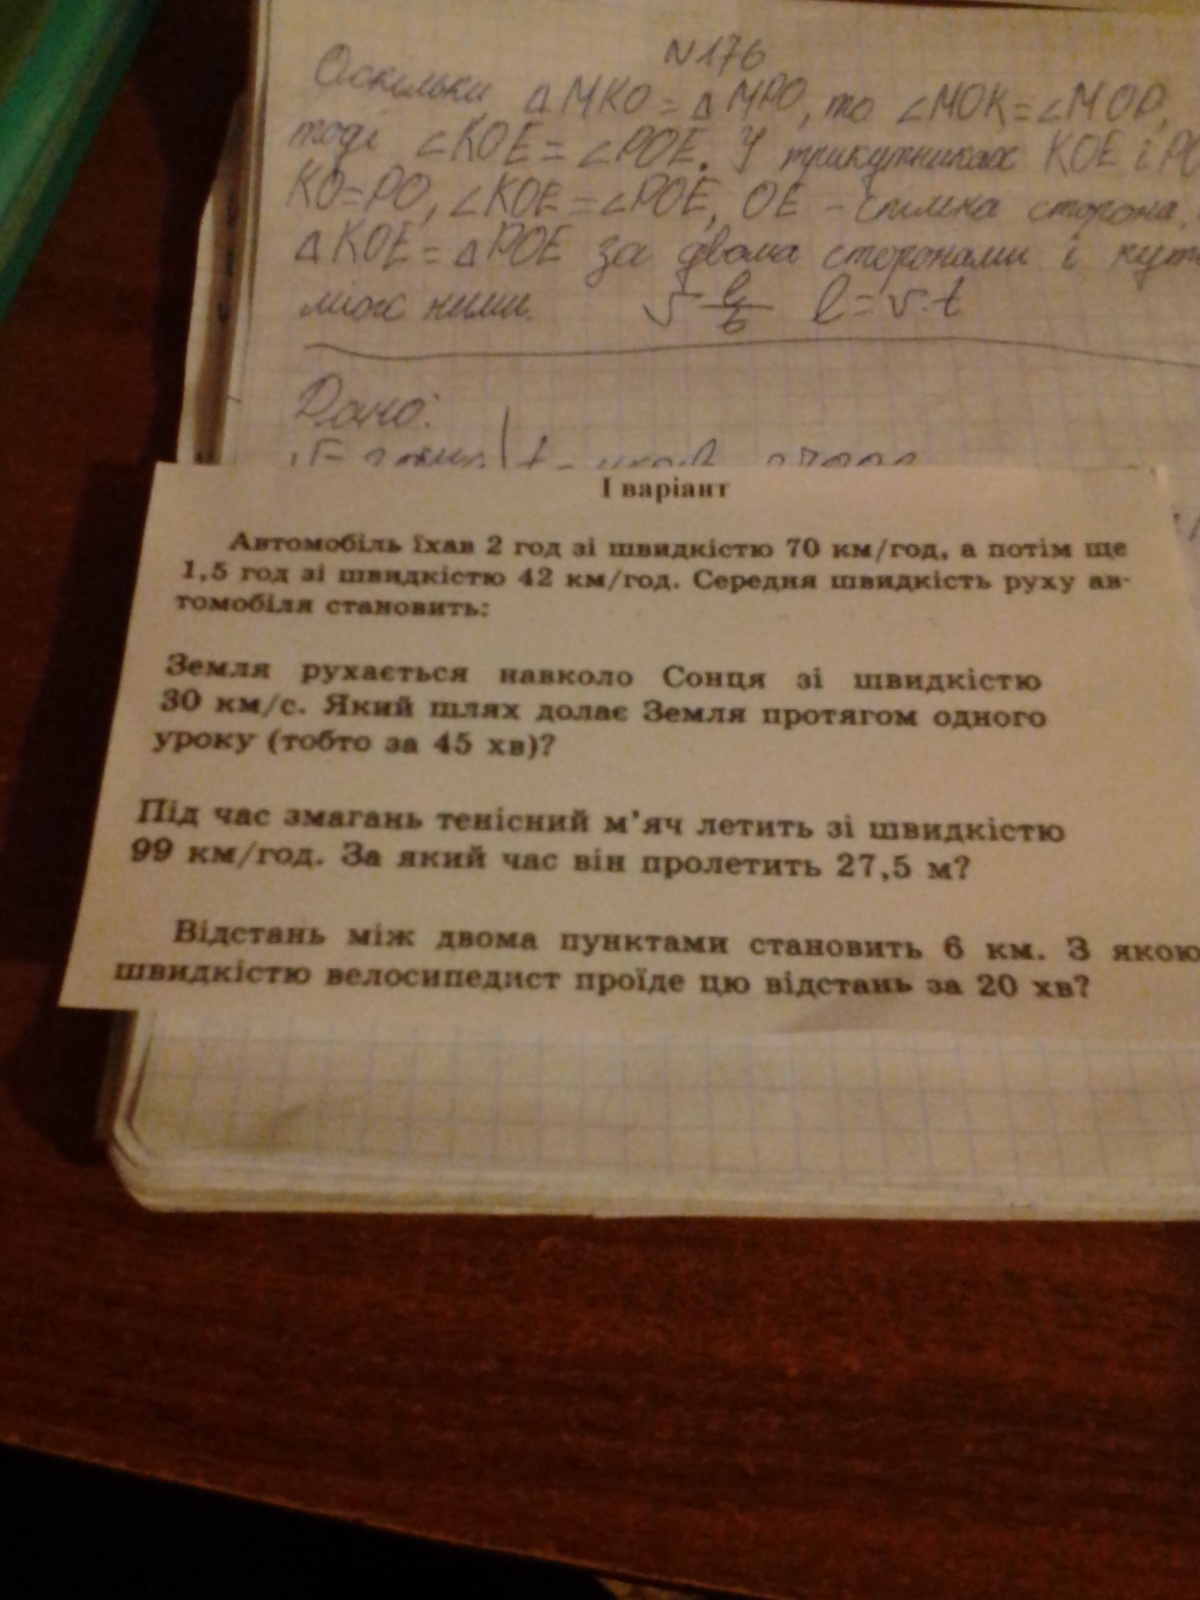 N176
Оскільки △MKO = △MPO, то ∠MOK = ∠MOP,
тоді ∠KOE = ∠POE. У трикутниках KOE і PO
KO=PO, ∠KOE = ∠POE, OE - спільна сторона.
△KOE = △POE за двома сторонами і кут
між ними. l = v·t
Дано:
І варіант
Автомобіль їхав 2 год зі швидкістю 70 км/год, а потім ще
1,5 год зі швидкістю 42 км/год. Середня швидкість руху ав-
томобіля становить:
Земля рухається навколо Сонця зі швидкістю
30 км/с. Який шлях долає Земля протягом одного
уроку (тобто за 45 хв)?
Під час змагань тенісний м’яч летить зі швидкістю
99 км/год. За який час він пролетить 27,5 м?
Відстань між двома пунктами становить 6 км. З якою
швидкістю велосипедист проїде цю відстань за 20 хв?